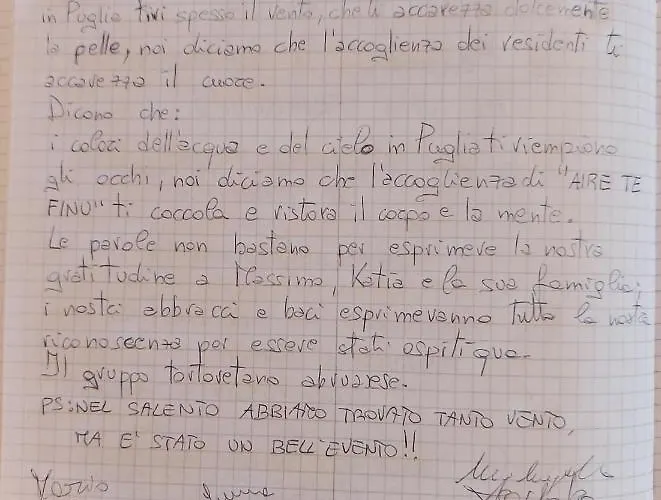 in Puglia tivi spesso il vento, che ti accarezza dolcemente
la pelle, noi diciamo che l'accoglienza dei residenti ti
accarezza il cuore.
Dicono che:
i colori dell'acqua e del cielo in Puglia ti riempiono
gli occhi, noi diciamo che l'accoglienza di "AIRE TE
FINU" ti coccola e ristora il corpo e la mente.
Le parole non bastano per esprimere la nostra
gratitudine a Massimo, Katia e la sua famiglia;
i nostri abbracci e baci esprimeranno tutta la nostra
riconoscenza per essere stati ospiti qua.
Il gruppo tortoretano abruzzese.
PS: NEL SALENTO ABBIAMO TROVATO TANTO VENTO,
MA E' STATO UN BELL'EVENTO!!